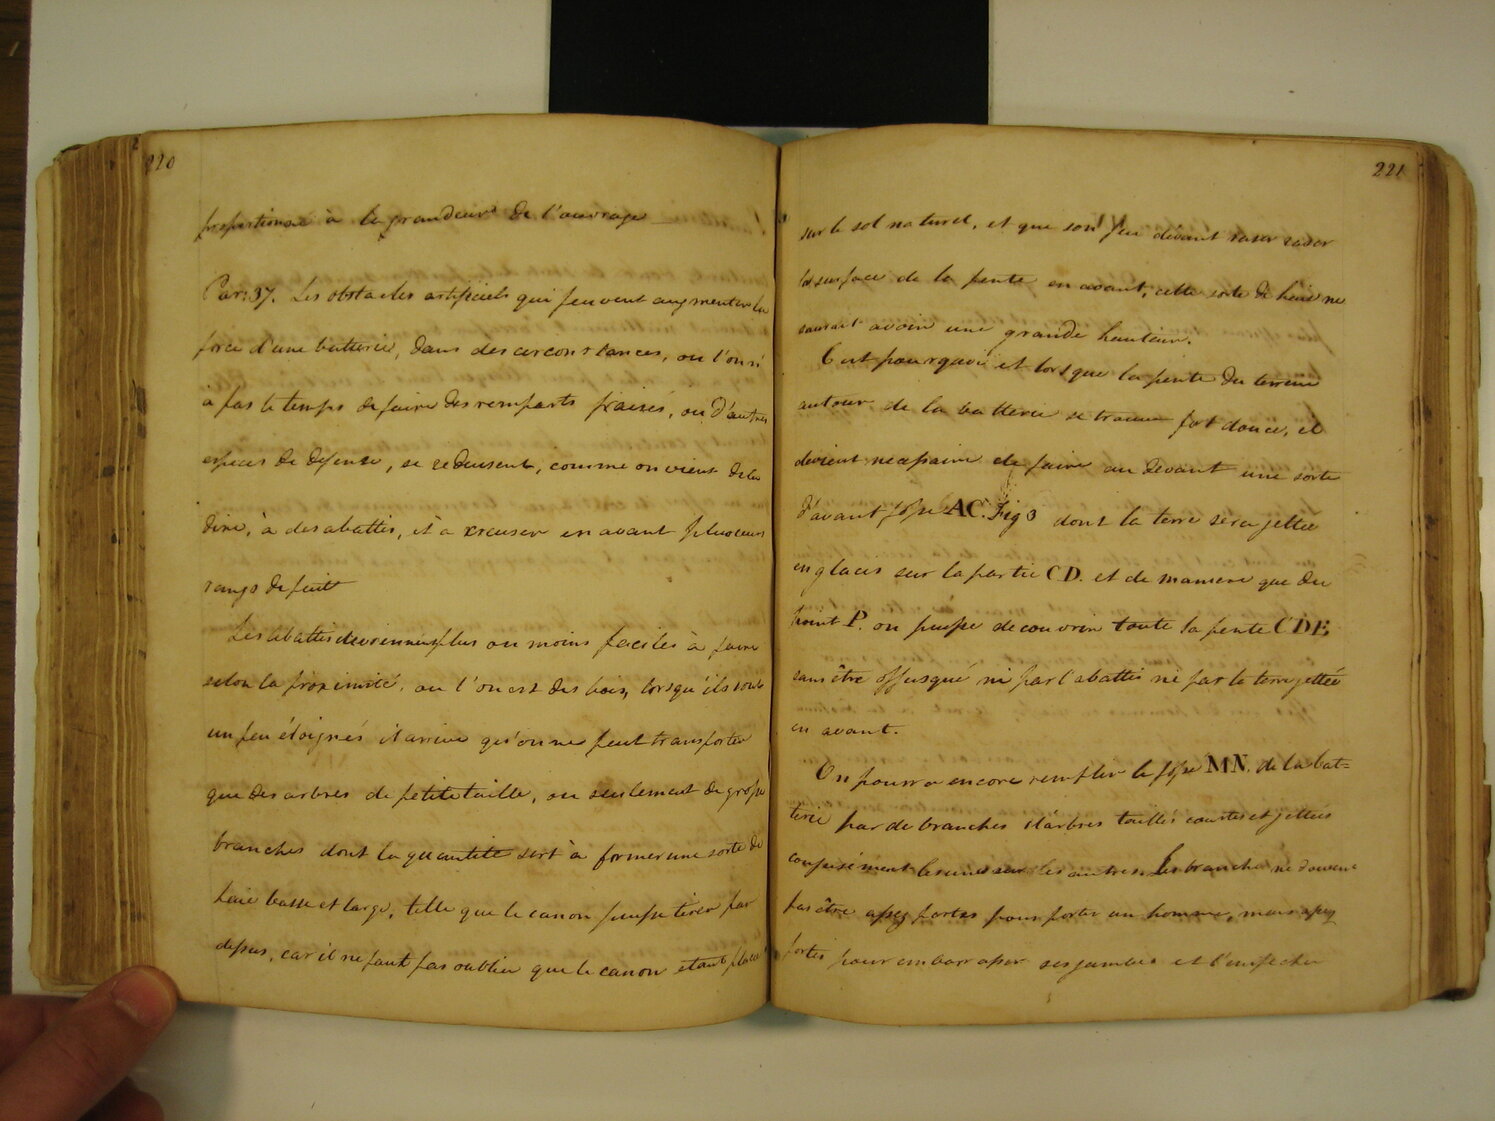 220
proportionné à la grandeur de l'ouvrage
Par: 37. Les obstacles artificiels qui peuvent augmenter la
force d'une batterie, dans des circonstances, ou l'on n'
a pas le temps de faire des remparts fraisés, ou d'autres
especes de defense, se reduisent, comme on vient de le
dire, à des abattis, et à creuser en avant plusieurs
rangs de puits
Les abattis deviennent plus ou moins faciles à faire
selon la proximité, ou l'on est des bois, lorsqu'ils sont
un peu éloignés il arrive qu'on ne peut transporter
que des arbres de petite taille, ou seulement de grosse
branches dont la quantité sert à former une sorte de
haie basse et large, telle que le canon puisse tirer par
dessus, car il ne faut pas oublier que le canon etant placé
221
sur le sol naturel, et que son feu devant raser raser
la surface de la pente en avant, cette sorte de haie ne
saurait avoir une grande hauteur.
C'est pourquoi et lorsque la pente du terrein
autour de la batterie se trouve fort douce, il
devient necessaire de faire au devant une sorte
d'avant fossé AC. Fig 3 dont la terre sera jettée
en glacis sur la partie CD. et de maniere que du
point P. on puisse decouvrir toute la pente CDE,
sans être offusqué ni par l'abattis ni par la terre jettée
en avant.
On pourra encore remplir le fossé MN. de la bat=
terie par de branches d'arbres taillés courtes et jettées
confusément les unes sur les autres. Les branches ne doivent
pas être assez fortes pour porter un homme, mais assez
fortes pour embarrasser ses jambes et l'empecher